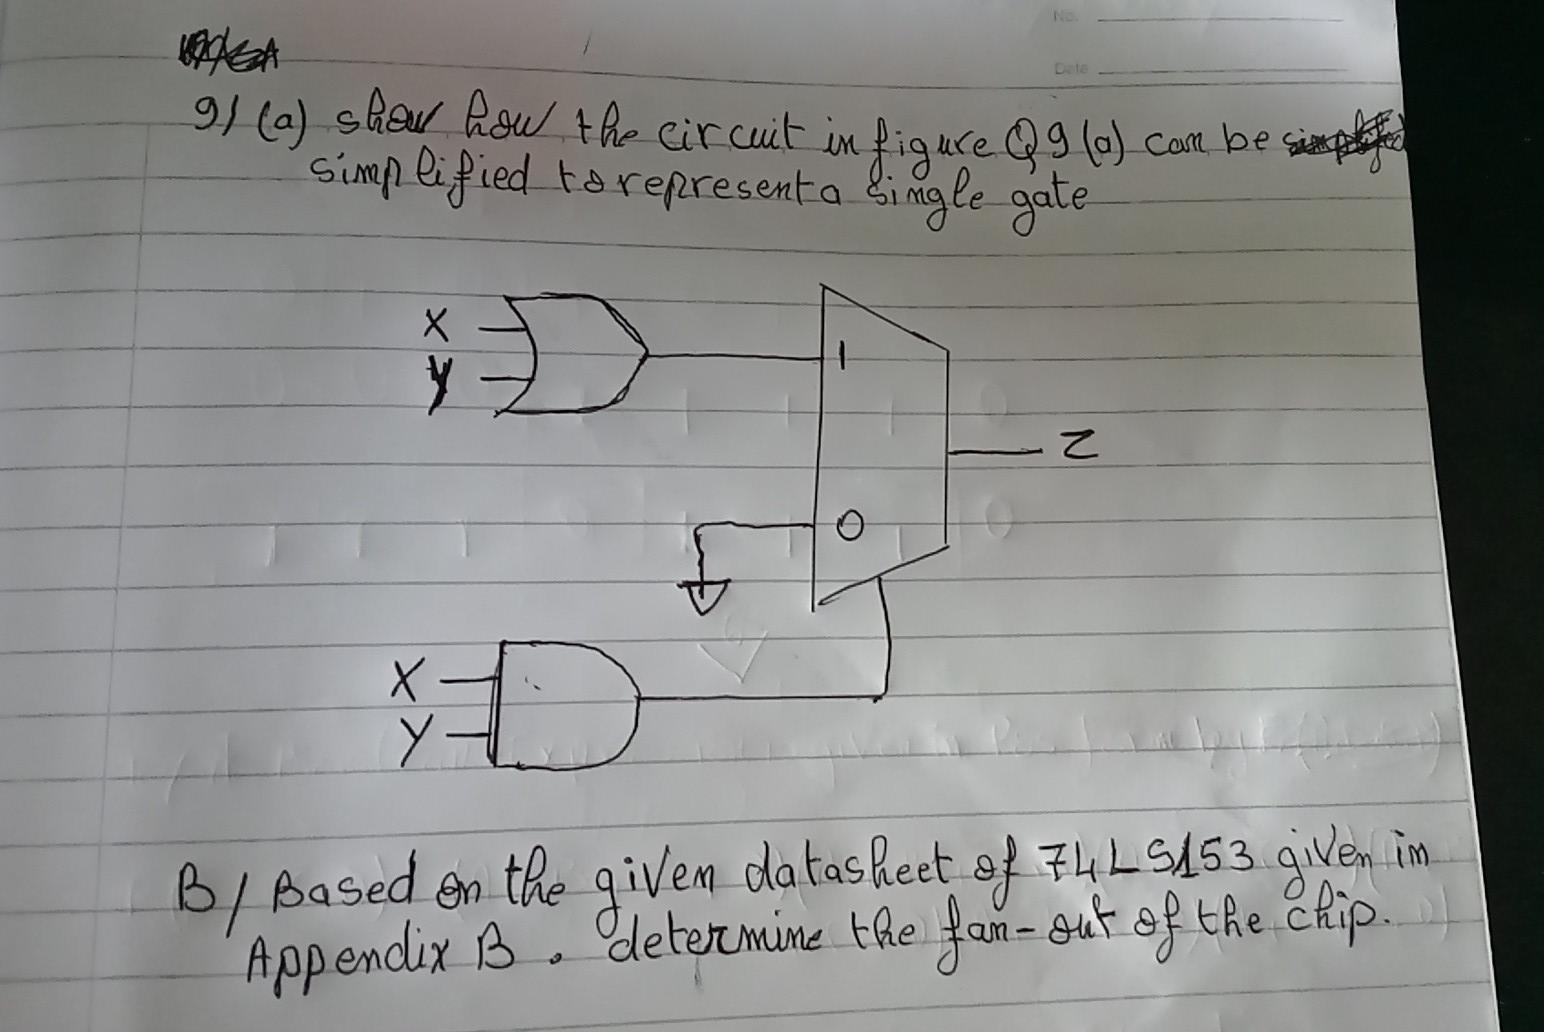 No.
Date
9/ (a) show how the circuit in figure Q9(a) can be
simplified to represent a single gate
X
Y
1
Z
0
X
Y
B/ Based on the given datasheet of 74LS153 given in
Appendix B. determine the fan-out of the chip.